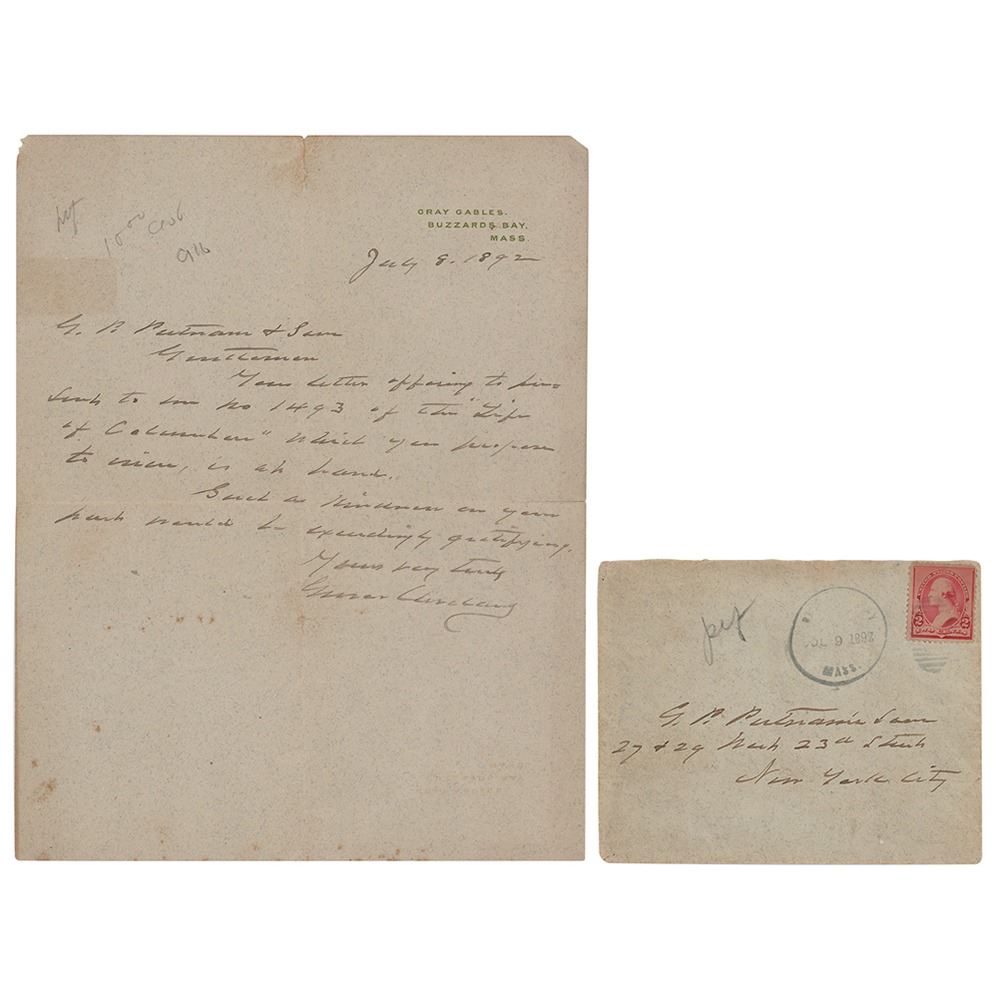 GRAY GABLES.
BUZZARDS BAY,
MASS.
July 8. 1892
G. P. Putnam & Sons
Gentlemen
Your letter offering to pre=
sent to me No 1493 of the "Life
of Columbus" which you propose
to issue, is at hand.
Such a kindness on your
part would be exceedingly gratifying.
Yours very truly
Grover Cleveland
1892
MASS.
2
2
G. P. Putnam's Sons
27 & 29 West 23d Street
New York City